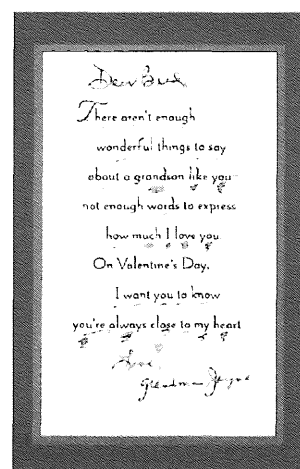 Dear
There aren't enough
wonderful things to say
about a grandson like you
not enough words to express
how much I love you
On Valentine's Day.
I want you to know
you're always close to my heart
Love
Grandma Jayne